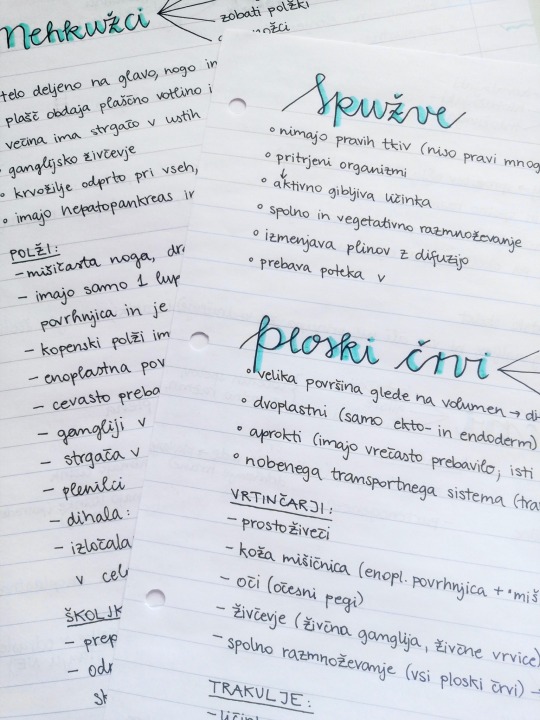 Mehkužci
zobati polžki
telo deljeno na glavo, nogo in
plašč obdaja plaščno votlino i
večina ima strgačo v ustih
ganglijsko živčevje
• krvožilje odprto pri vseh,
• imajo hepatopankreas ir
POLŽI:
- mišičasta noga, dr
- imajo samo 1 lup
povrhnjica in je
- kopenski polži im
- enoplastna pov
- cevasto preba
- gangliji v
- strgača v
- plenilci
- dihala:
- izločala
v cel
ŠKOLJK
- prep
- odr
sk
Spužve
• nimajo pravih tkiv (niso pravi mnog
• pritrjeni organizmi
• aktivno gibljiva ličinka
• spolno in vegetativno razmnoževanje
• izmenjava plinov z difuzijo
• prebava poteka v
ploski črvi
• velika površina glede na volumen → di
• dvoplastni (samo ekto- in endoderm)
• aprokti (imajo vrečasto prebavilo, isti
• nobenega transportnega sistema (tra
VRTINČARJI:
- prostoživeči
- koža mišičnica (enopl. povrhnjica + miš
- oči (očesni pegi)
- živčevje (živčna ganglija, živčne vrvice)
- spolno razmnoževanje (vsi ploski črvi) -
TRAKULJE: